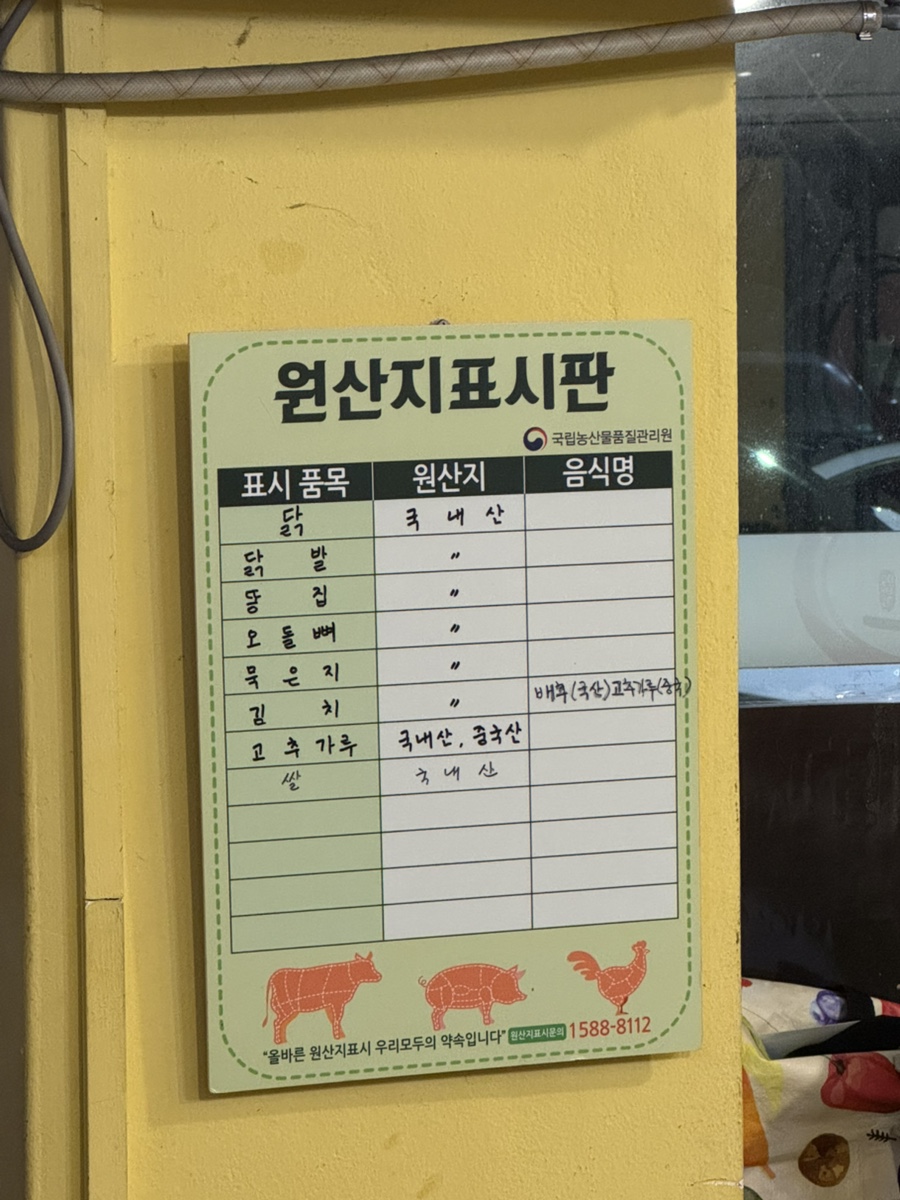 원산지표시판
국립농산물품질관리원
표시 품목 원산지 음식명
닭 국내산
닭발 〃
똥집 〃
오돌뼈 〃
묵은지 〃
김치 〃 배추(국산)고추가루(중국)
고추가루 국내산, 중국산
쌀 국내산
"올바른 원산지표시 우리모두의 약속입니다" 원산지표시문의 1588-8112